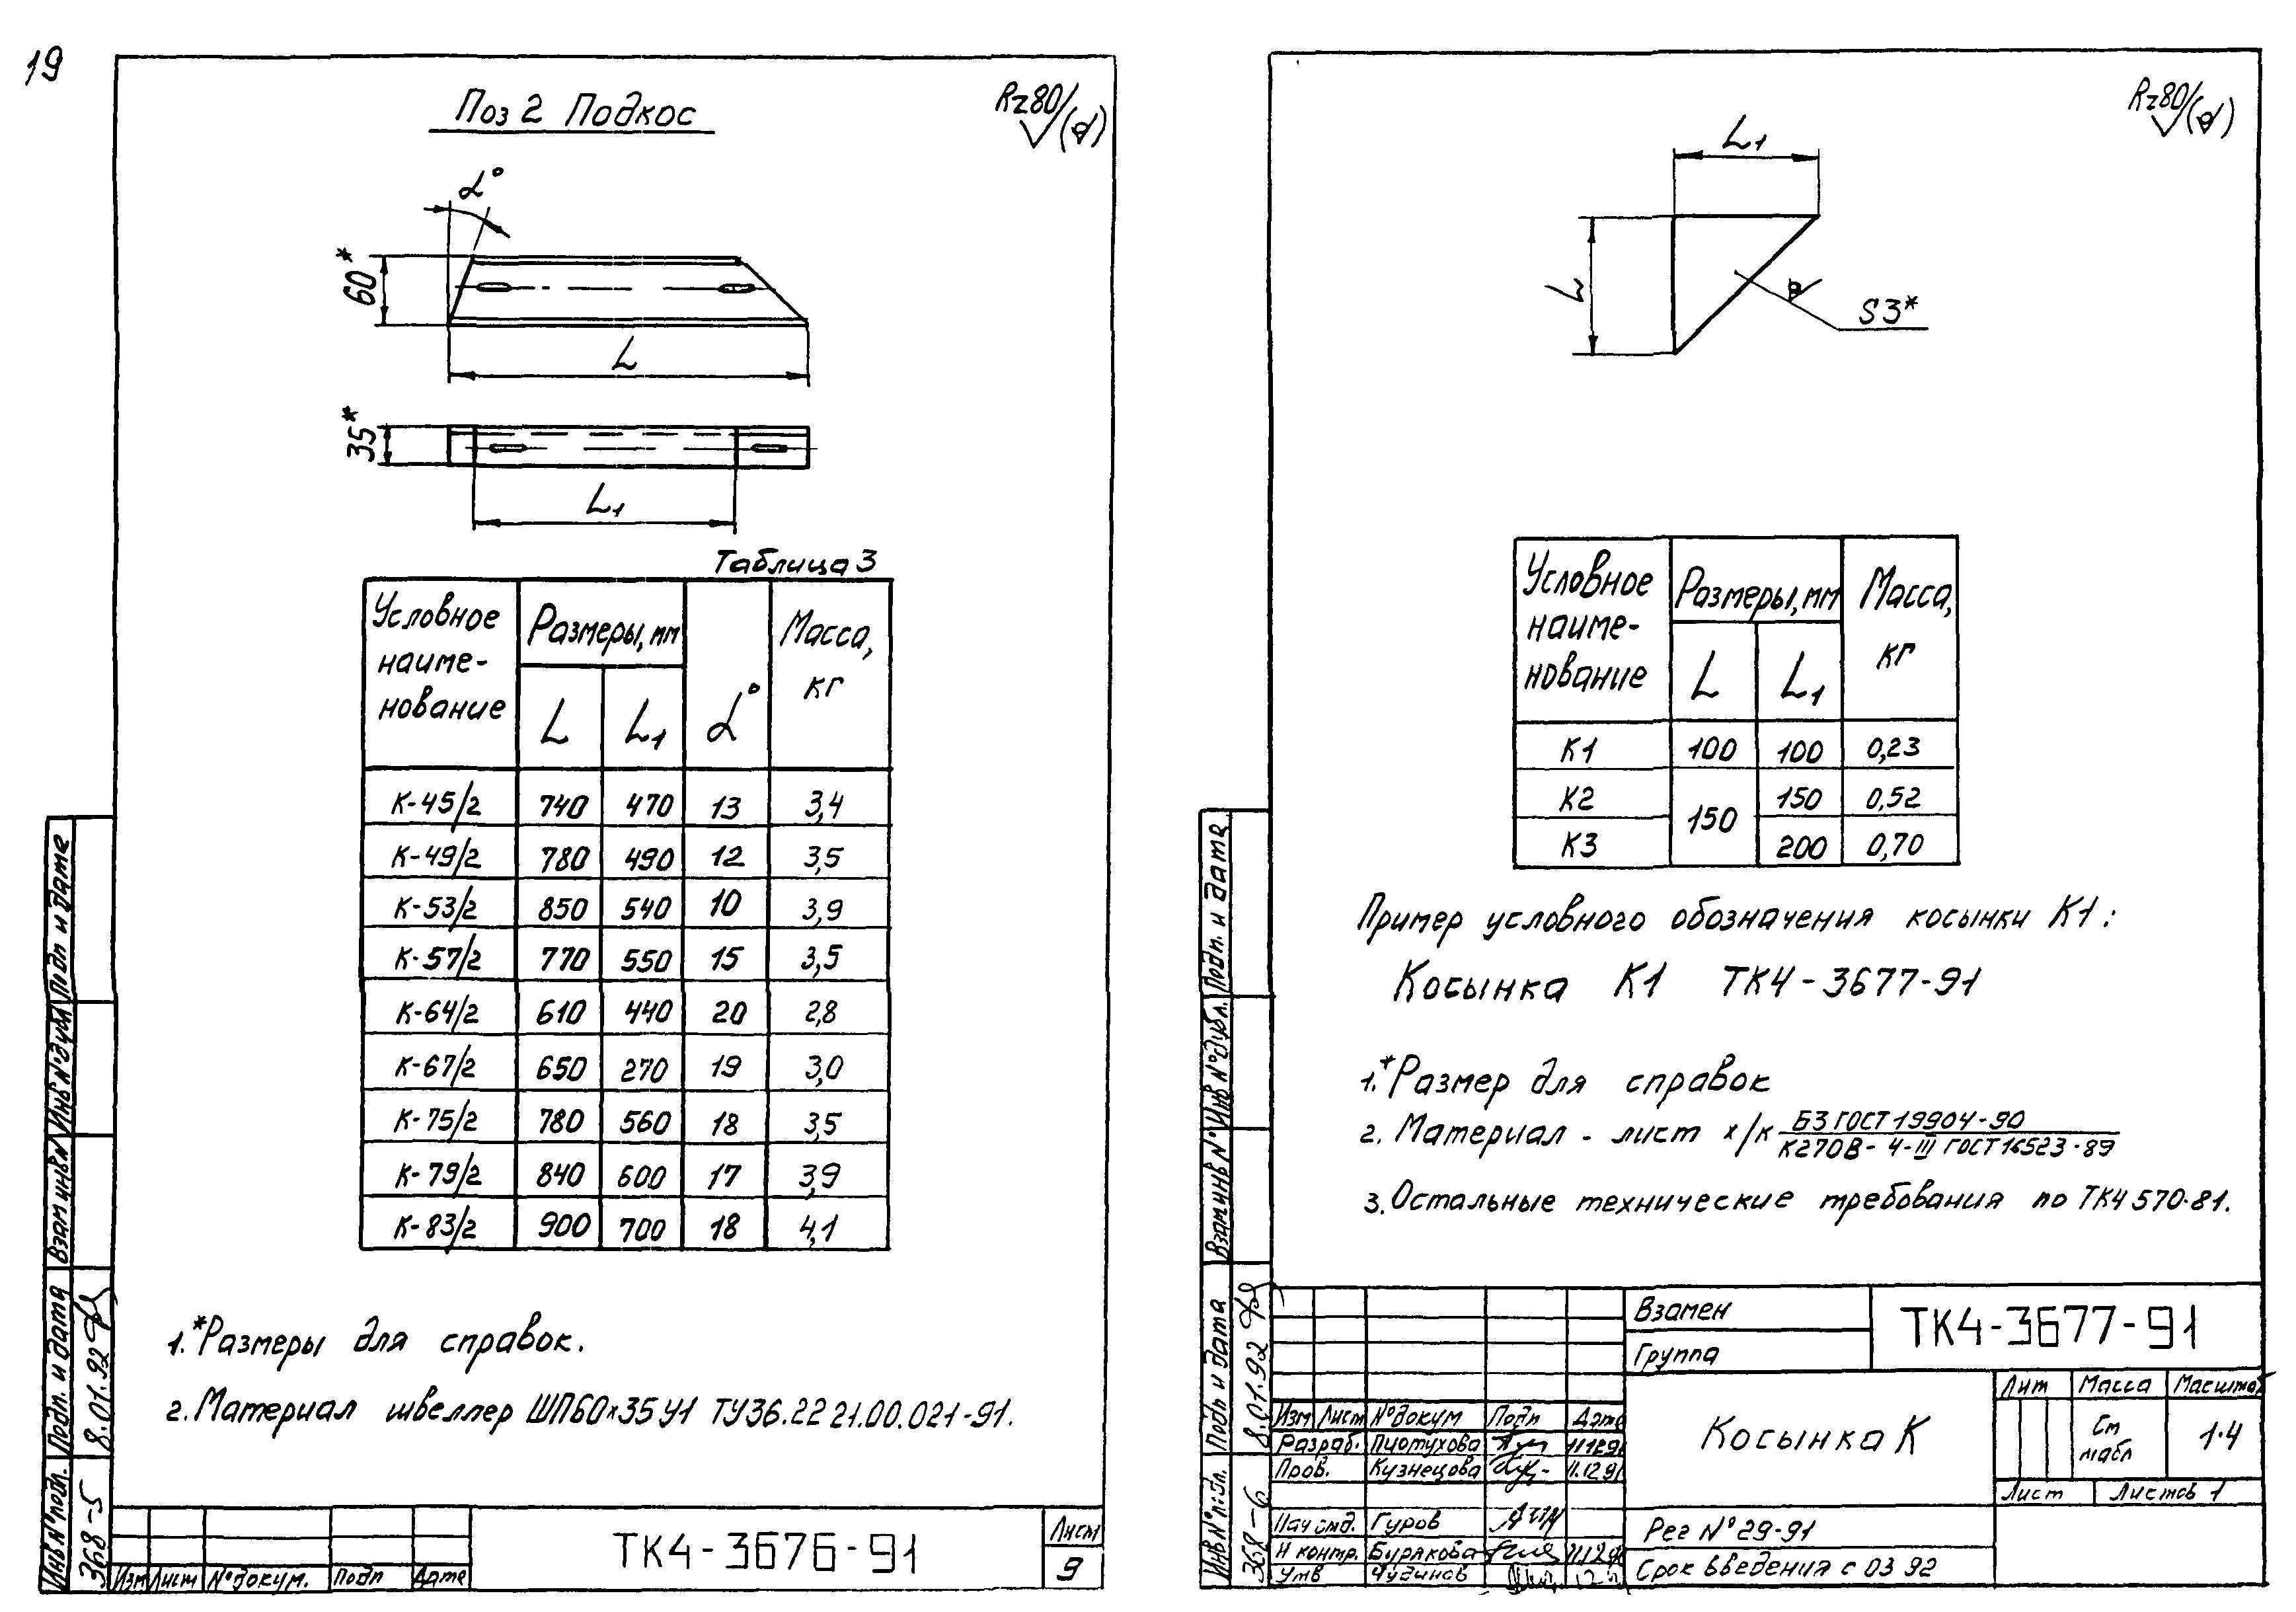 19
Поз 2 Подкос
Rz80 (√)
α°
60*
L
35*
L1
Таблица 3
Условное наиме-нование | Размеры, мм | α° | Масса, кг
L | L1
К-45/2 740 470 13 3,4
К-49/2 780 490 12 3,5
К-53/2 850 540 10 3,9
К-57/2 770 550 15 3,5
К-64/2 610 440 20 2,8
К-67/2 650 270 19 3,0
К-75/2 780 560 18 3,5
К-79/2 840 600 17 3,9
К-83/2 900 700 18 4,1
1.*Размеры для справок.
2. Материал швеллер ШП60х35 У1 ТУ36.22 21.00.021-91.
Подп и дата
Инв N°дубл
Взам инв N
Подп. и дата
8.01.92
Инв N°подл.
368-5
Изм Лист N°докум. Подп Дата
ТК4-3676-91
Лист
9
Rz80 (√)
L1
L
S3*
Условное наиме-нование | Размеры, мм | Масса, кг
L | L1
К1 100 100 0,23
К2 150 150 0,52
К3 200 0,70
Пример условного обозначения косынки К1:
Косынка К1 ТК4-3677-91
1.*Размер для справок
2. Материал - лист х/к Б3 ГОСТ 19904-90
К270В-4-III ГОСТ 16523-89
3. Остальные технические требования по ТК4 570-81.
Подп. и дата
Инв N°дубл.
Взам инв N°
Подп и дата
8.01.92
Инв N°подл.
368-6
Взамен
Группа
ТК4-3677-91
Изм Лист N°докум Подп Дата
Разраб. Пиотухова 11.1291
Пров. Кузнецова 11.12 91
Нач отд. Гуров
Н контр. Бурякова
Утв Чудинов
Косынка К
Лит Масса Масштаб
См табл
1·4
Лист Листов 1
Рег N° 29-91
Срок введения с 03 92